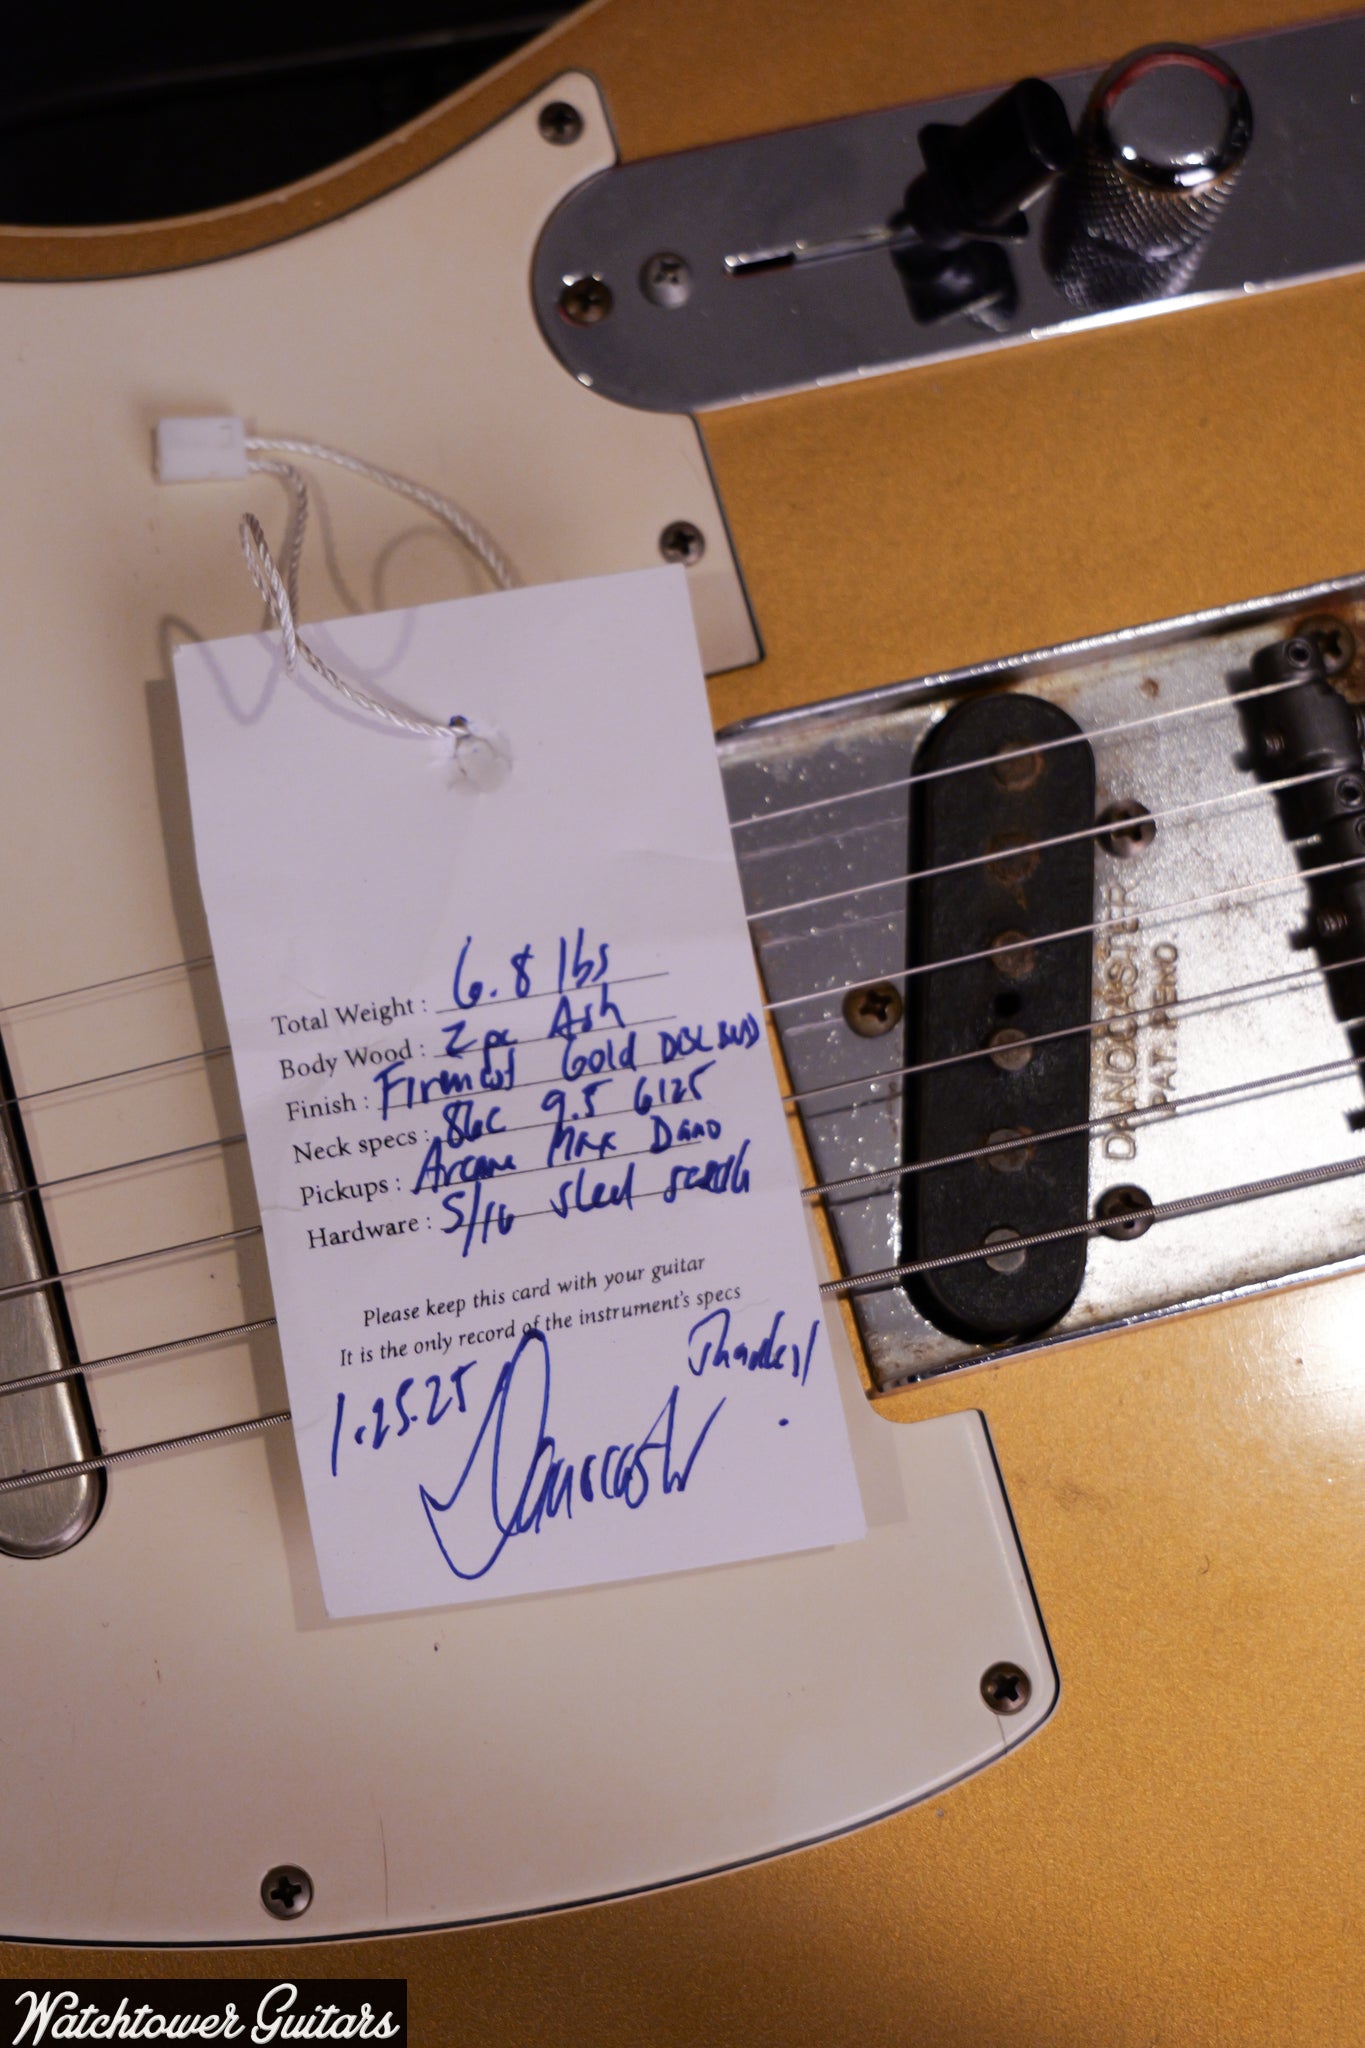 Total Weight : 6.8 lbs
Body Wood : 2 pc Ash
Finish : Firemist Gold DBL BND
Neck specs : 86C 9.5 6125
Pickups : Arcane Max Dano
Hardware : 5/16 steel saddle
Please keep this card with your guitar
It is the only record of the instrument's specs
Thanks!!
1.25.25
Danocaster
DANOCASTER
PAT. PEND
Watchtower Guitars